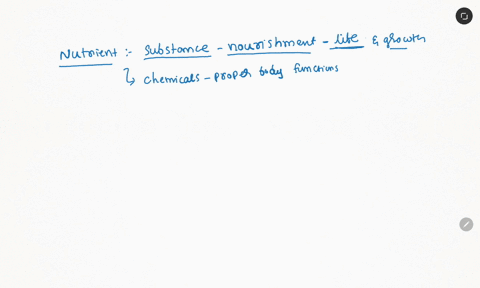 Nutrient :- substance - nourishment - life & growth
↳ chemicals - proper body functions